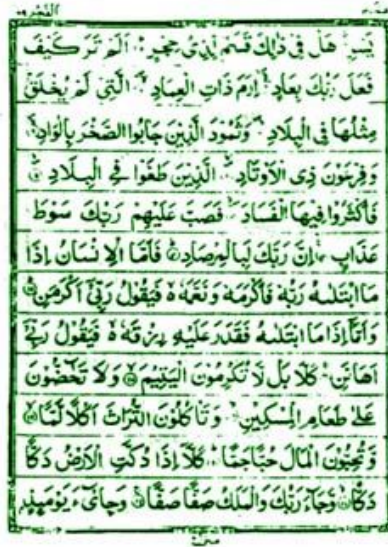 الفجر ٨٩
عم ٣٠
يَسْرِ ۚ هَلْ فِيْ ذٰلِكَ قَسَمٌ لِّذِيْ حِجْرٍ ۚ اَلَمْ تَرَ كَيْفَ
فَعَلَ رَبُّكَ بِعَادٍ ۙ اِرَمَ ذَاتِ الْعِمَادِ ۙ الَّتِيْ لَمْ يُخْلَقْ
مِثْلُهَا فِي الْبِلَادِ ۙ وَثَمُوْدَ الَّذِيْنَ جَابُوا الصَّخْرَ بِالْوَادِ ۙ
وَفِرْعَوْنَ ذِي الْاَوْتَادِ ۙ الَّذِيْنَ طَغَوْا فِي الْبِلَادِ ۙ
فَاَكْثَرُوْا فِيْهَا الْفَسَادَ ۙ فَصَبَّ عَلَيْهِمْ رَبُّكَ سَوْطَ
عَذَابٍ ۙ اِنَّ رَبَّكَ لَبِالْمِرْصَادِ ۗ فَاَمَّا الْاِنْسَانُ اِذَا
مَا ابْتَلٰىهُ رَبُّهٗ فَاَكْرَمَهٗ وَنَعَّمَهٗ ۙ فَيَقُوْلُ رَبِّيْ اَكْرَمَنِ ۗ
وَاَمَّا اِذَا مَا ابْتَلٰىهُ فَقَدَرَ عَلَيْهِ رِزْقَهٗ ۙ فَيَقُوْلُ رَبِّيْ
اَهَانَنِ ۚ كَلَّا بَلْ لَّا تُكْرِمُوْنَ الْيَتِيْمَ ۙ وَلَا تَحٰضُّوْنَ
عَلٰى طَعَامِ الْمِسْكِيْنِ ۙ وَتَاْكُلُوْنَ التُّرَاثَ اَكْلًا لَّمًّا ۙ
وَّتُحِبُّوْنَ الْمَالَ حُبًّا جَمًّا ۗ كَلَّا اِذَا دُكَّتِ الْاَرْضُ دَكًّا
دَكًّا ۙ وَّجَآءَ رَبُّكَ وَالْمَلَكُ صَفًّا صَفًّا ۚ وَجِايْٓءَ يَوْمَئِذٍۭ